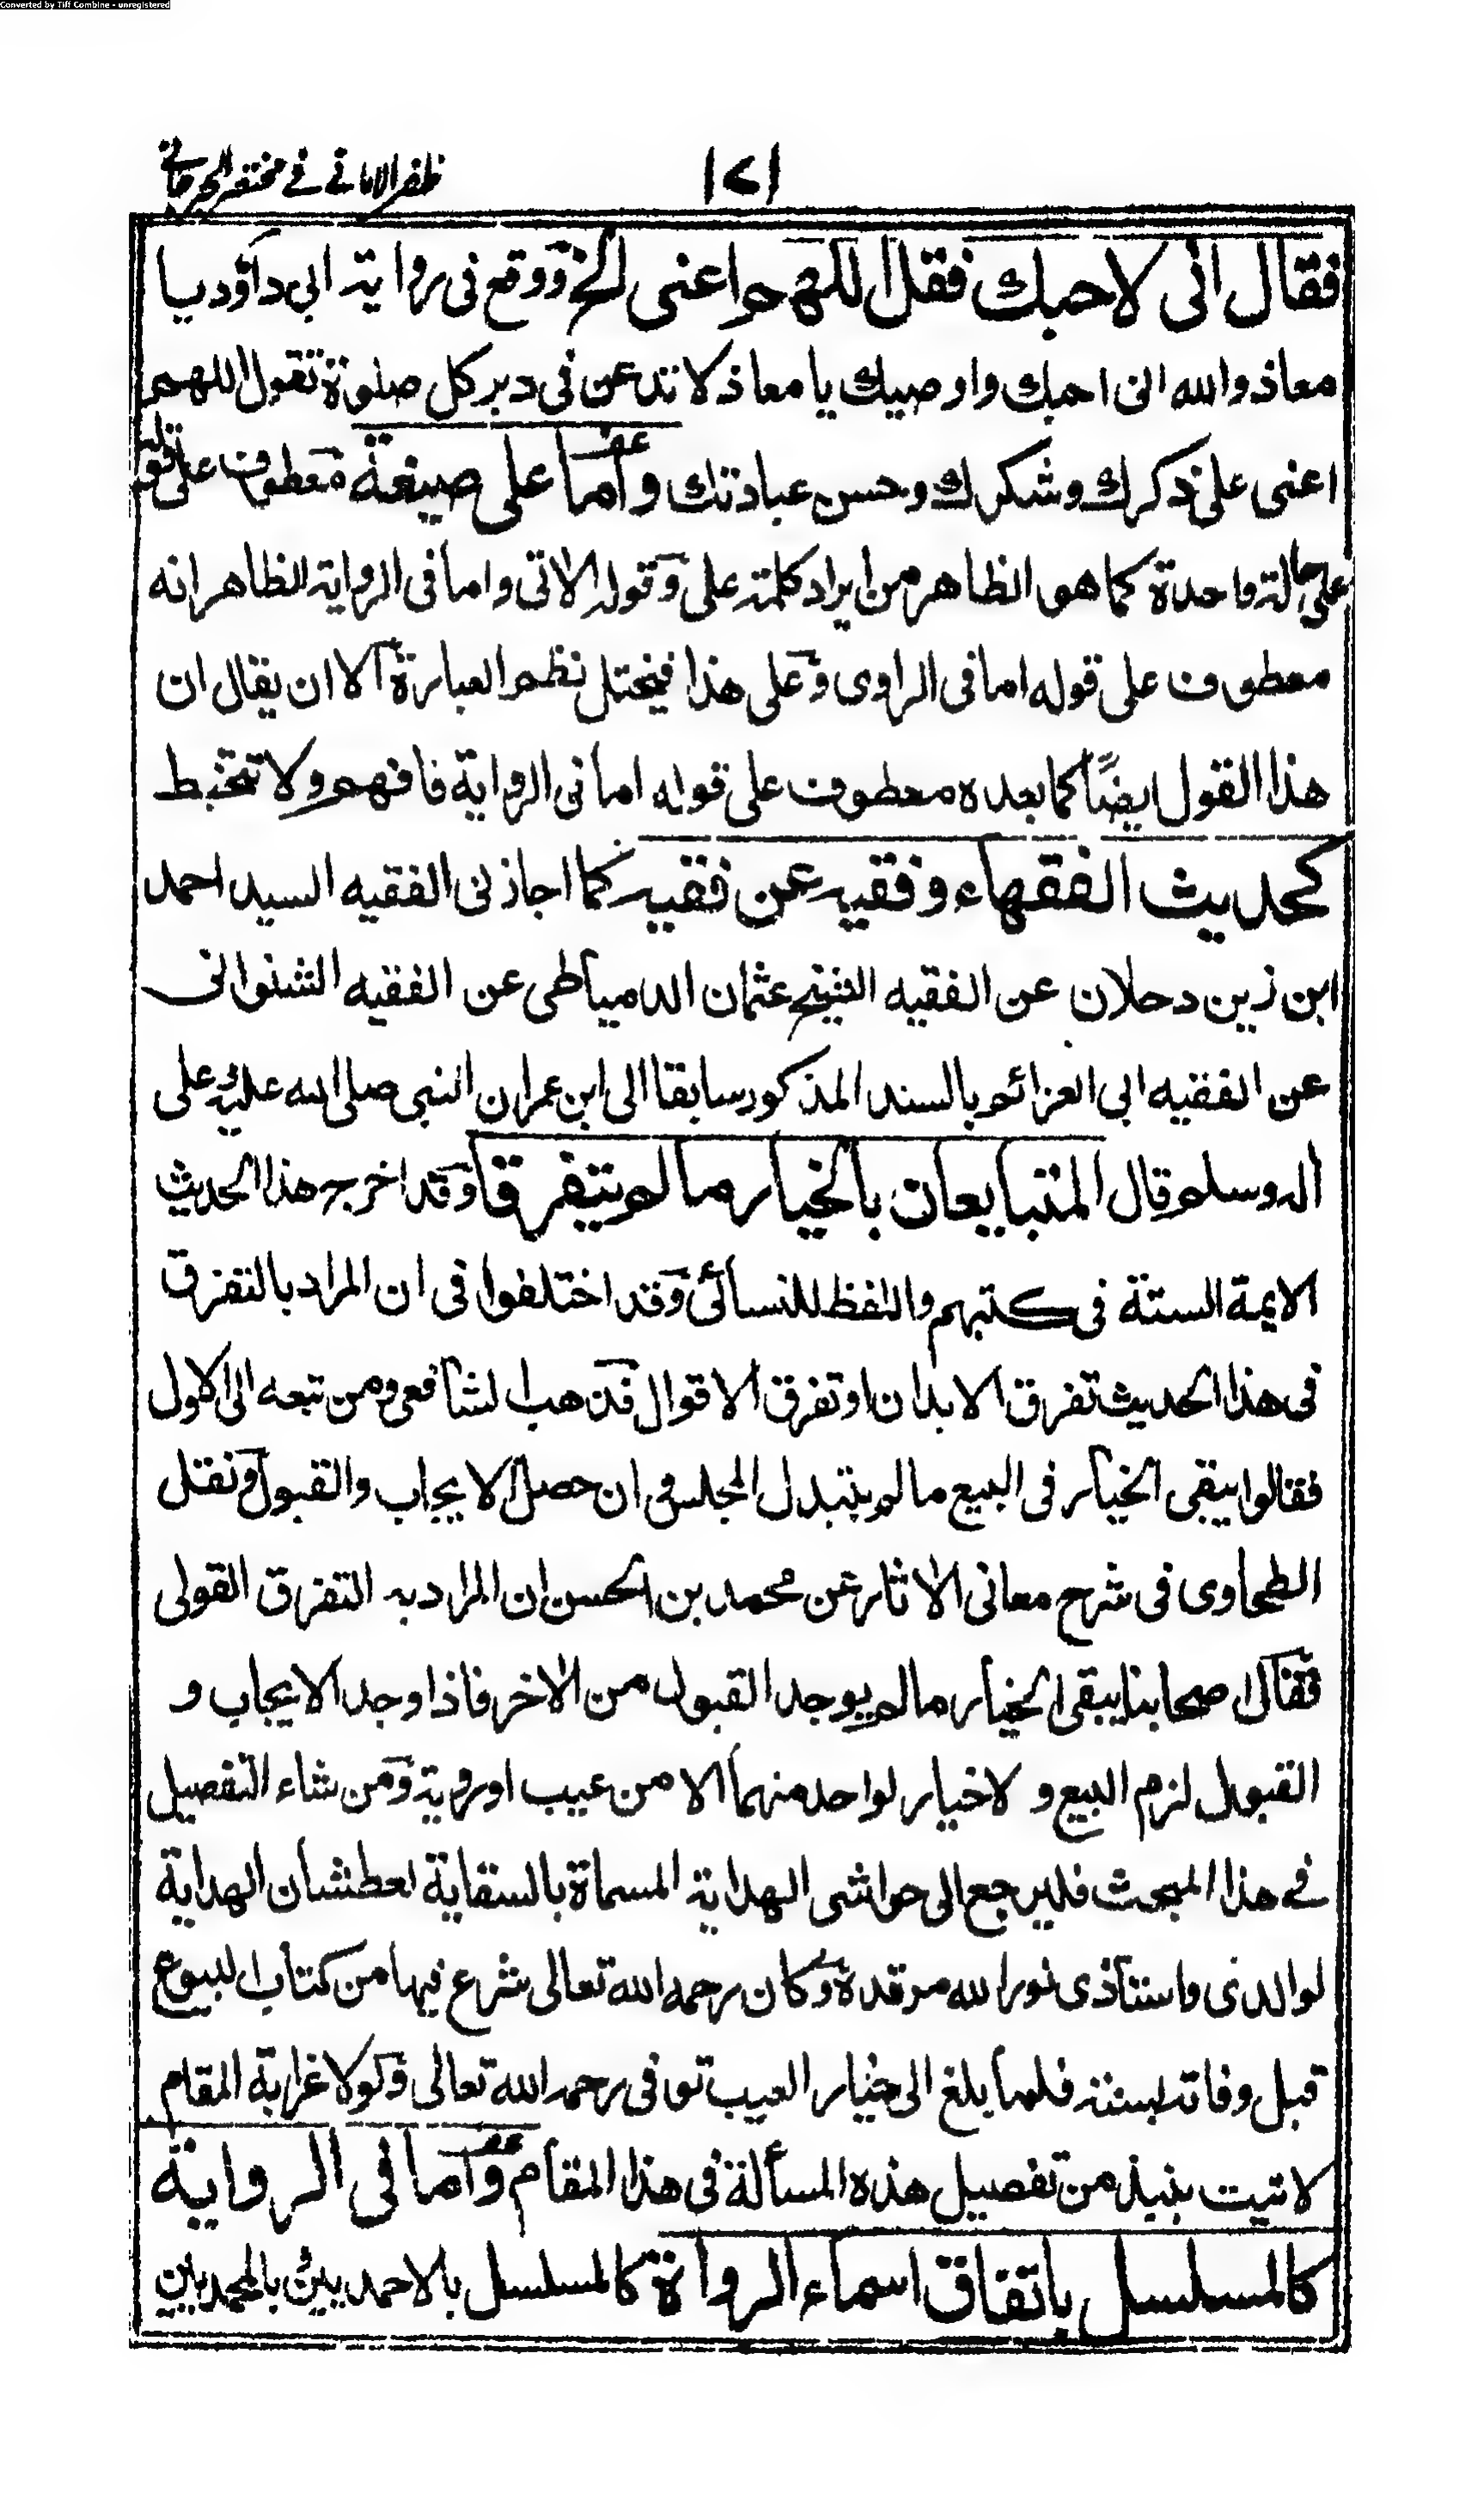 Converted by Tiff Combine - unregistered
١٧١
ظفر الامانے فے مختصر الجرجانے
فقال انى لاحبك فقل اللهم اعنى الخ ووقع فى رواية ابى داؤد يا
معاذ والله انى احبك واوصيك يا معاذ لا تدعن فى دبر كل صلوة تقول اللهم
اعنى على ذكرك وشكرك وحسن عبادتك واما على صيغة معطوف على قوله
على حالة واحدة كما هو الظاهر من ايراد كلمة على وقوله الاتى واما فى الرواية الظاهر انه
معطوف على قوله اما فى الراوى وعلى هذا فيختل نظم العبارة الا ان يقال ان
هذا القول ايضًا كما بعده معطوف على قوله اما فى الرواية فافهم ولا تختبط
كحديث الفقهاء وفقيه عن فقيه كما اجازنى الفقيه السيد احمد
ابن زين دحلان عن الفقيه الشيخ عثمان الدمياطى عن الفقيه الشنوانى
عن الفقيه ابى العزائم بالسند المذكور سابقا الى ابن عمران النبى صلى الله عليه وعلى
اله وسلم قال المتبايعان بالخيار ما لم يتفرقا وقد اخرجه هذا الحديث
الايمة الستة فى كتبهم واللفظ للنسائى وقد اختلفوا فى ان المراد بالتفرق
فى هذا الحديث تفرق الابدان او تفرق الاقوال فذهب الشافعى ومن تبعه الى الاول
فقالوا يبقى الخيار فى البيع ما لم يتبدل المجلس فى ان حصل الايجاب والقبول ونقل
الطحاوى فى شرح معانى الاثار عن محمد بن الحسن ان المراد به التفرق القولى
فقال اصحابنا يبقى الخيار ما لم يوجد القبول من الاخر فاذا وجد الايجاب و
القبول لزم البيع ولا خيار لواحد منهما الا من عيب او روية ومن شاء التفصيل
فے هذا المبحث فليرجع الى حواشى الهداية المسماة بالسقاية لعطشان الهداية
لوالدى واستاذى نور الله مرقده وكان رحمه الله تعالى شرع فيها من كتاب البيوع
قبل وفاته بسنة فلما بلغ الى خيار العيب توفى رحمه الله تعالى ولولا غرابة المقام
لاتيت بنبذ من تفصيل هذه المسألة فى هذا المقام واما فى الرواية
كالمسلسل باتفاق اسماء الرواة كالمسلسل بالاحمديين بالمحمديين